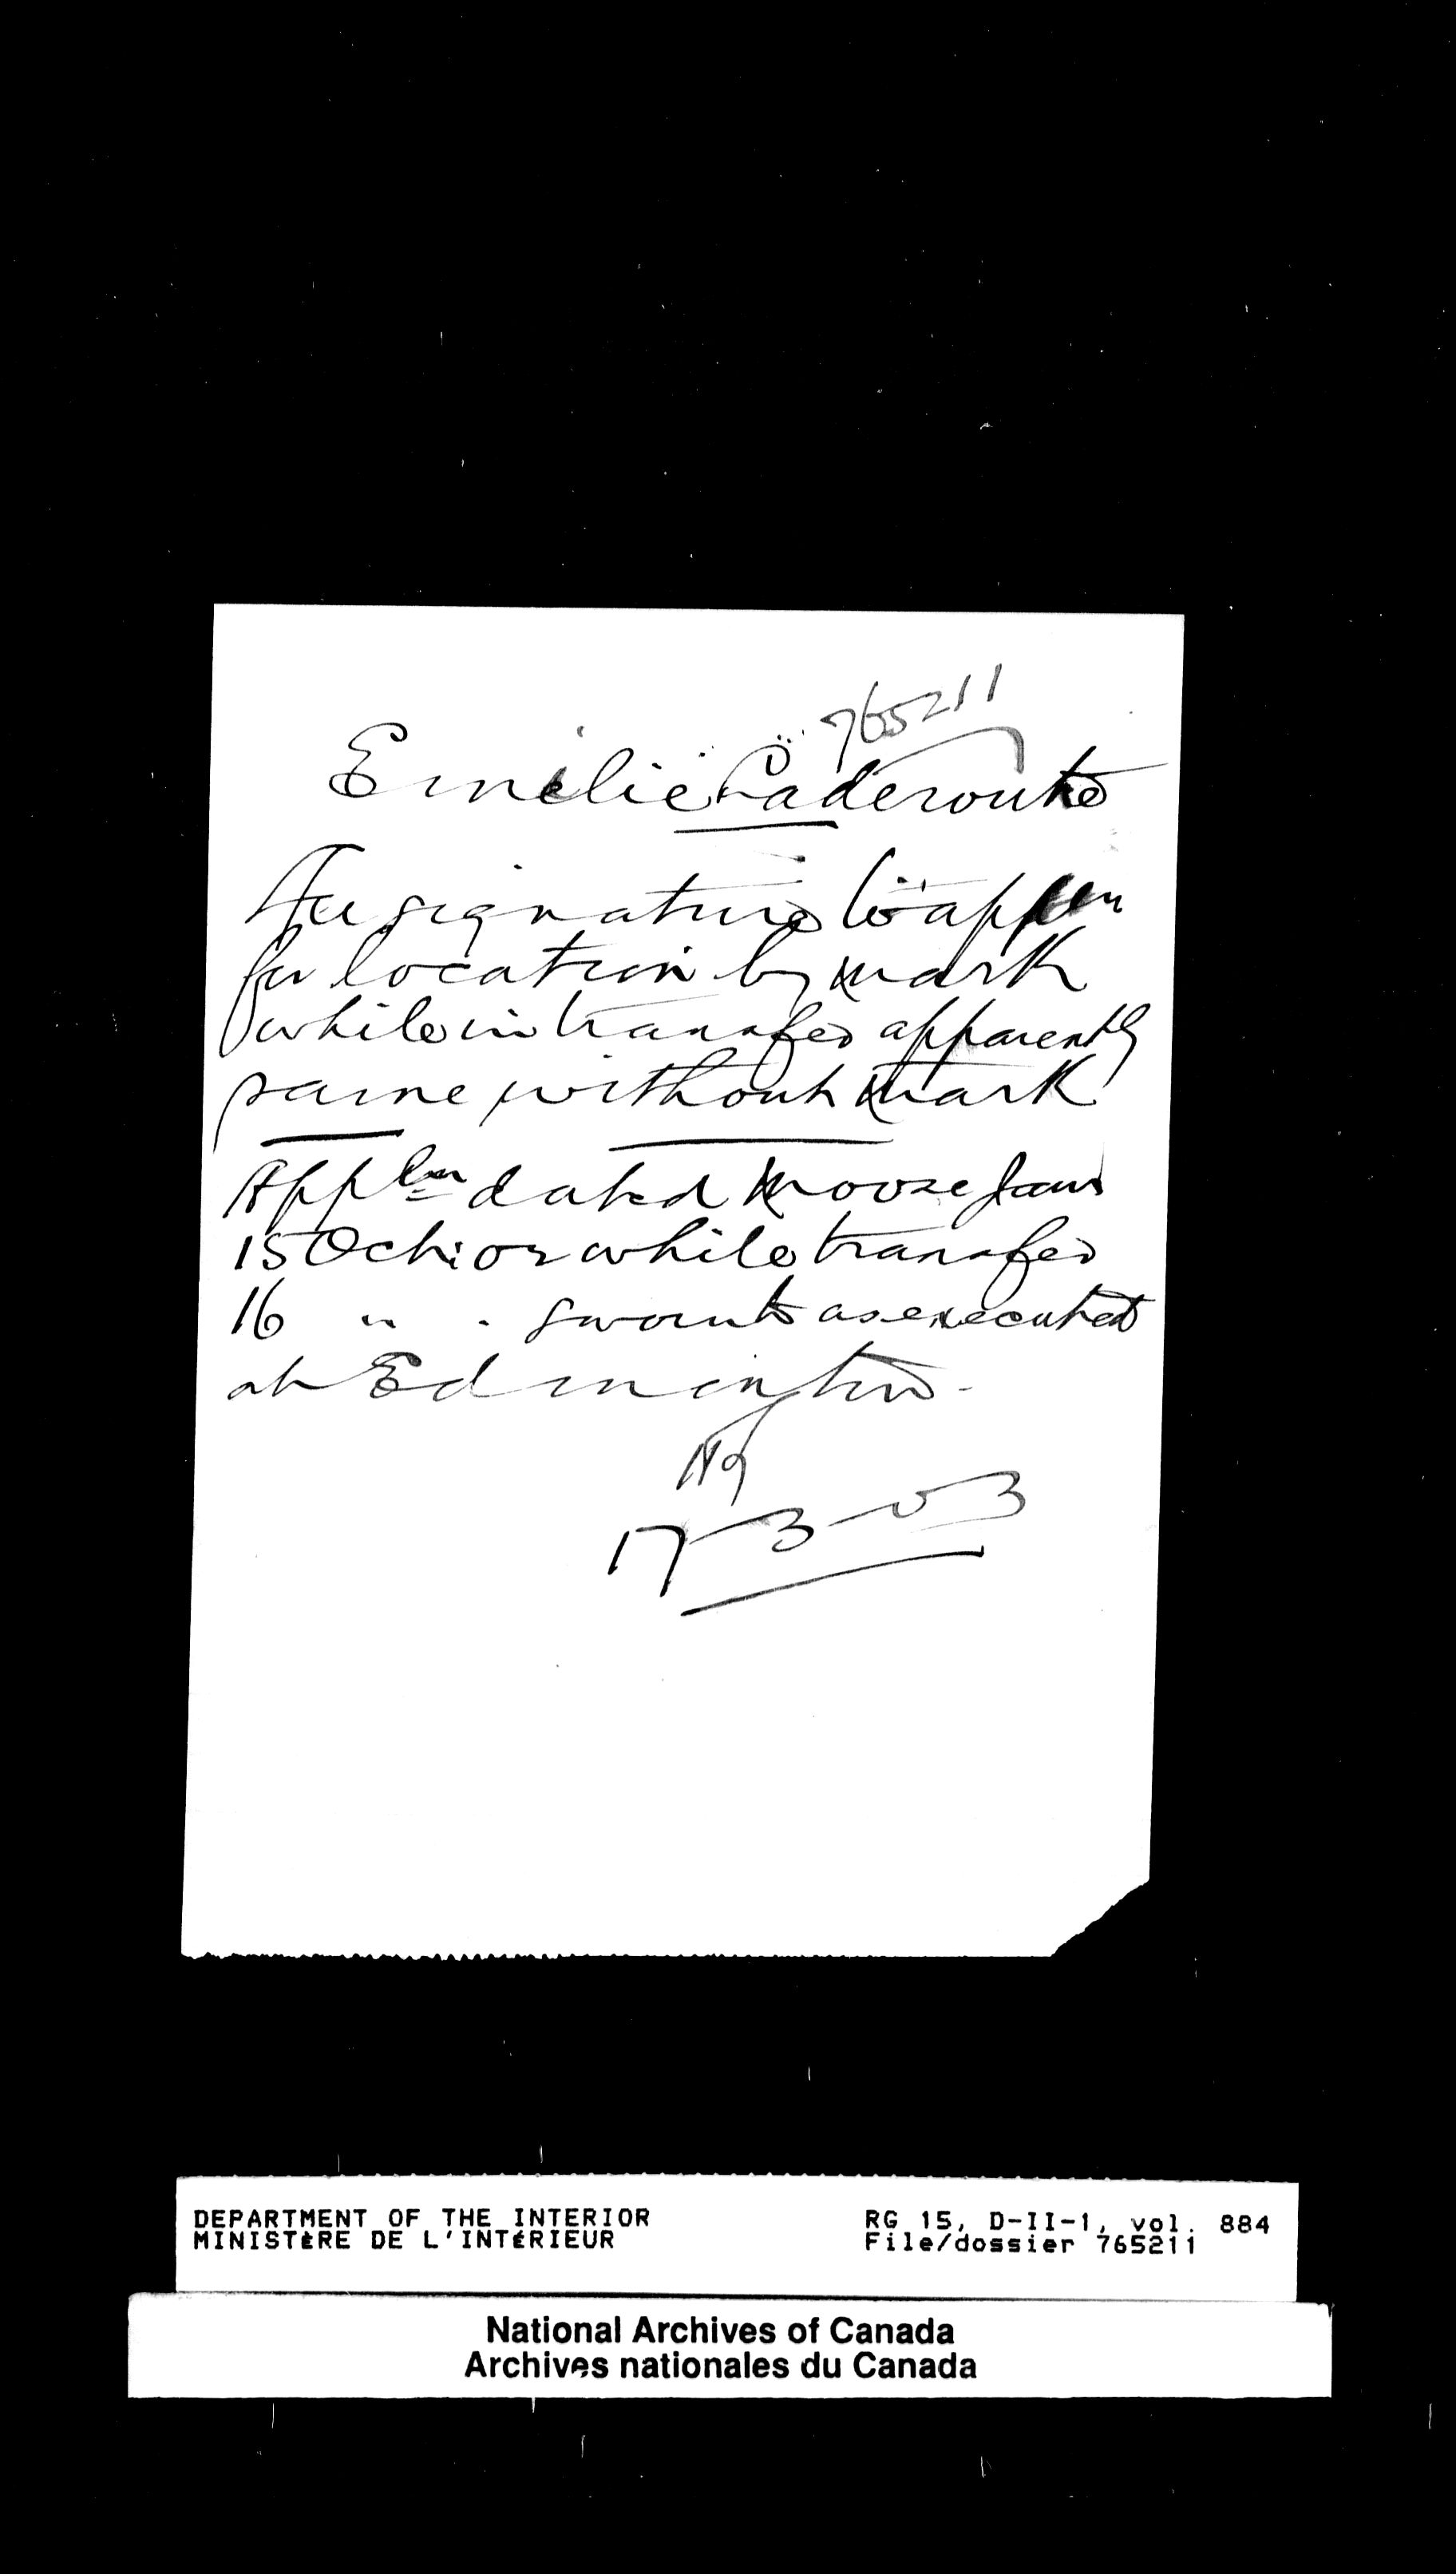 765211
Emélie Laderoute
Her signature to appln
for location by mark
while in transfer apparently
same without mark
Appln dated Moose Jaw
15 Oct: 02 while transfer
16 " " sworn to as executed
at Edmonton -
17-3-03
DEPARTMENT OF THE INTERIOR
MINISTÈRE DE L'INTÉRIEUR
RG 15, D-II-1, vol. 884
File/dossier 765211
National Archives of Canada
Archives nationales du Canada